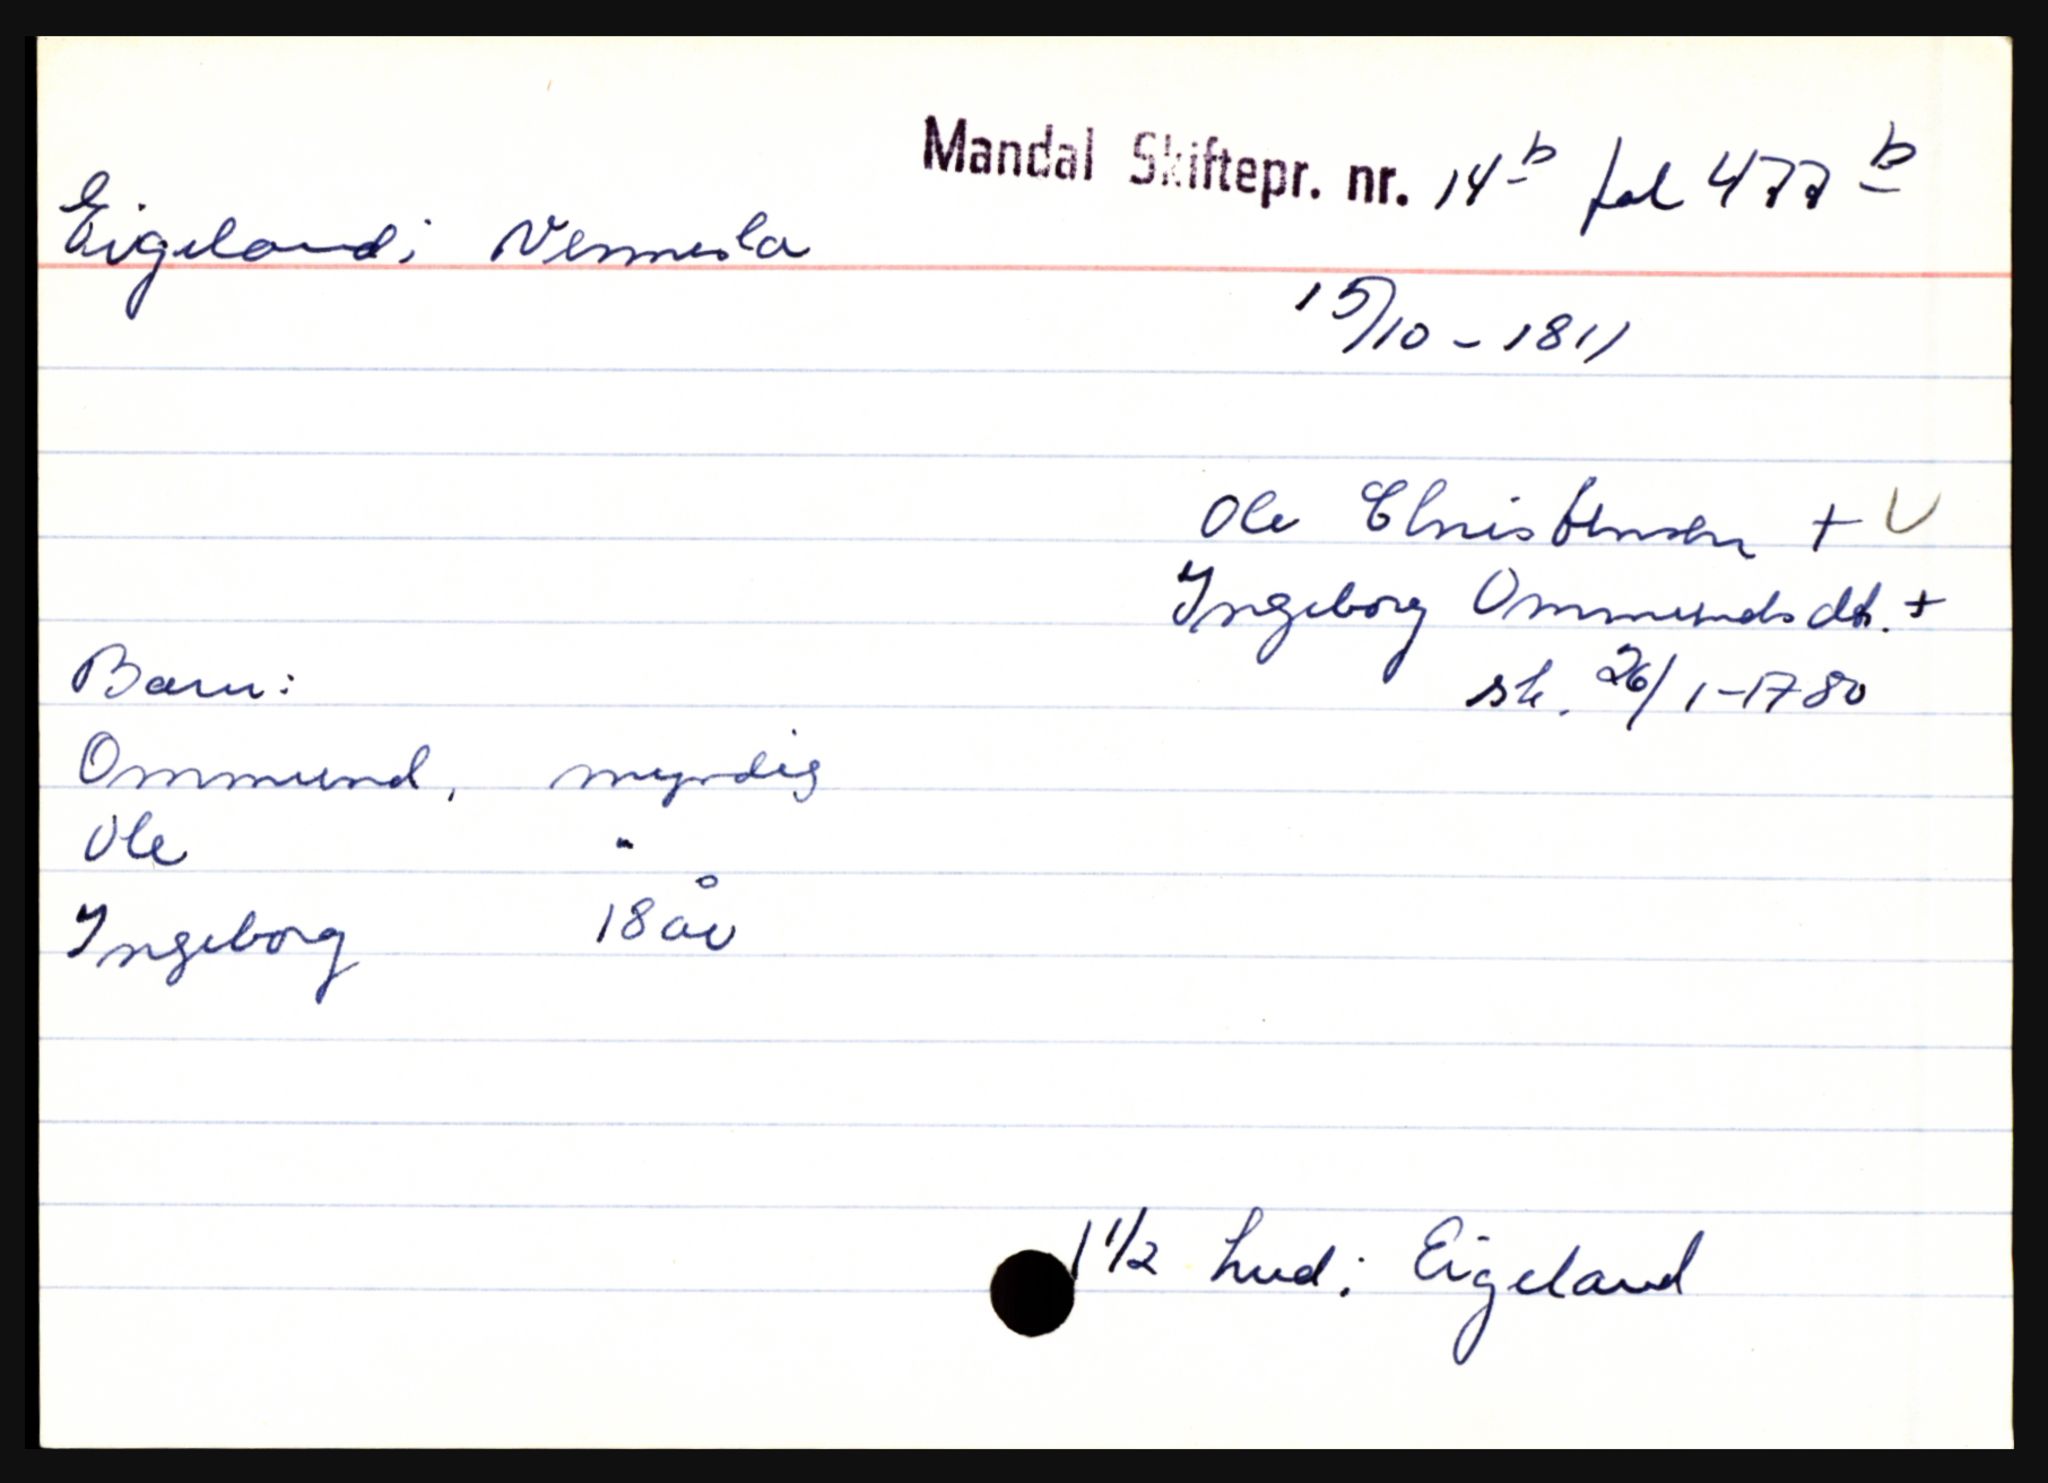 Mandal Skiftepr. nr. 14b fol 477b
Eigeland i Vennesla
15/10 - 1811
Ole Christensen +
Ingeborg Ommundsdt. +
sk. 26/1-1780
Barn:
Ommund, myndig
Ole "
Ingeborg 18 år
1 1/2 hud i Eigeland